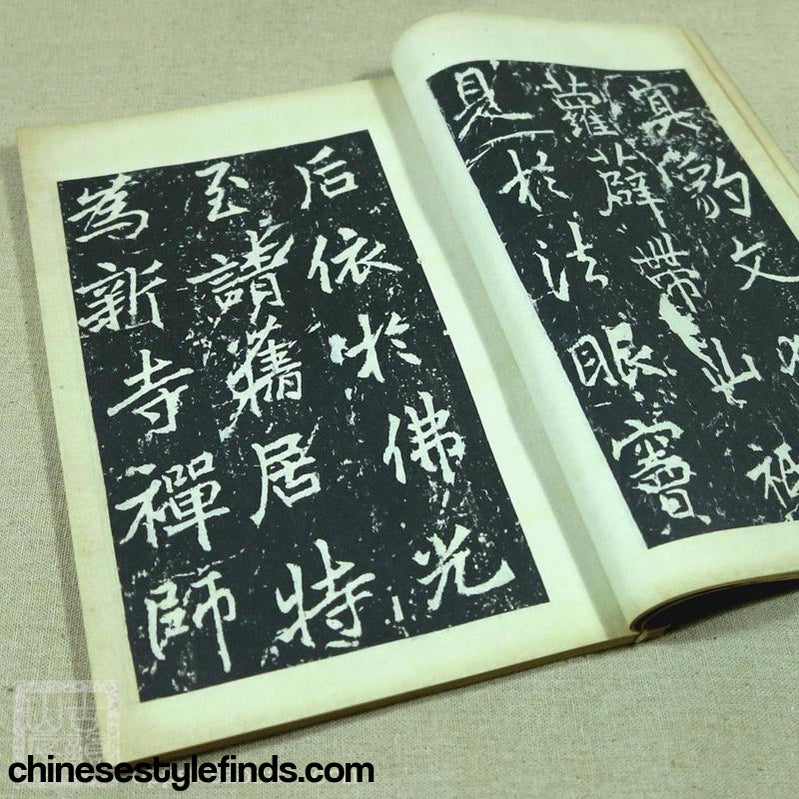 寘豹文
蘿薜帶山祇
見於法眼竇
后依於佛光
至請舊居特
為新寺禪師
chinesestylefinds.com